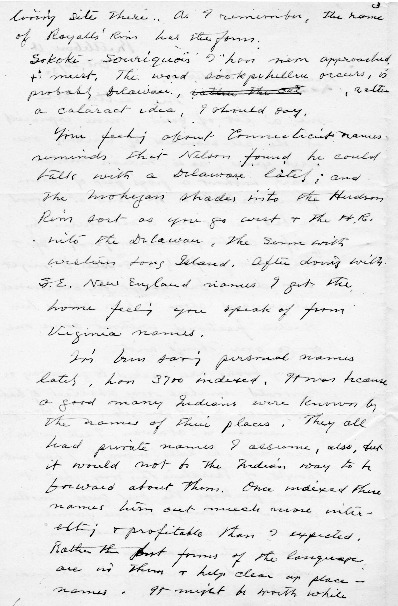 3
living site there. As I remember, the name
of Royall's River has the form.
Sokoki - Souriquois I han nem approached
& must. The word sookpehellue occurs, is
probably Delaware, rather
a cataract idea, I should say.
Your feeling about Connecticut names
reminds that Nelson found he could
talk with a Delaware lately; and
the Mohegan shades into the Hudson
River sort as you go west & the H.R.
into the Delaware, the same with
western Long Island. After doing with
S.E. New England names I get the
home feeling you speak of from
Virginia names.
I've been saving personal names
lately, have 3700 indexed. It was because
a good many Indians were known by
the names of their places. They all
had private names I assume, also, but
it would not be the Indian way to be
forward about them. Once indexed these
names turn out much more inter-
esting & profitable than I expected.
Rather the forms of the language
are in them & help clear up place-
names. It might be worth while